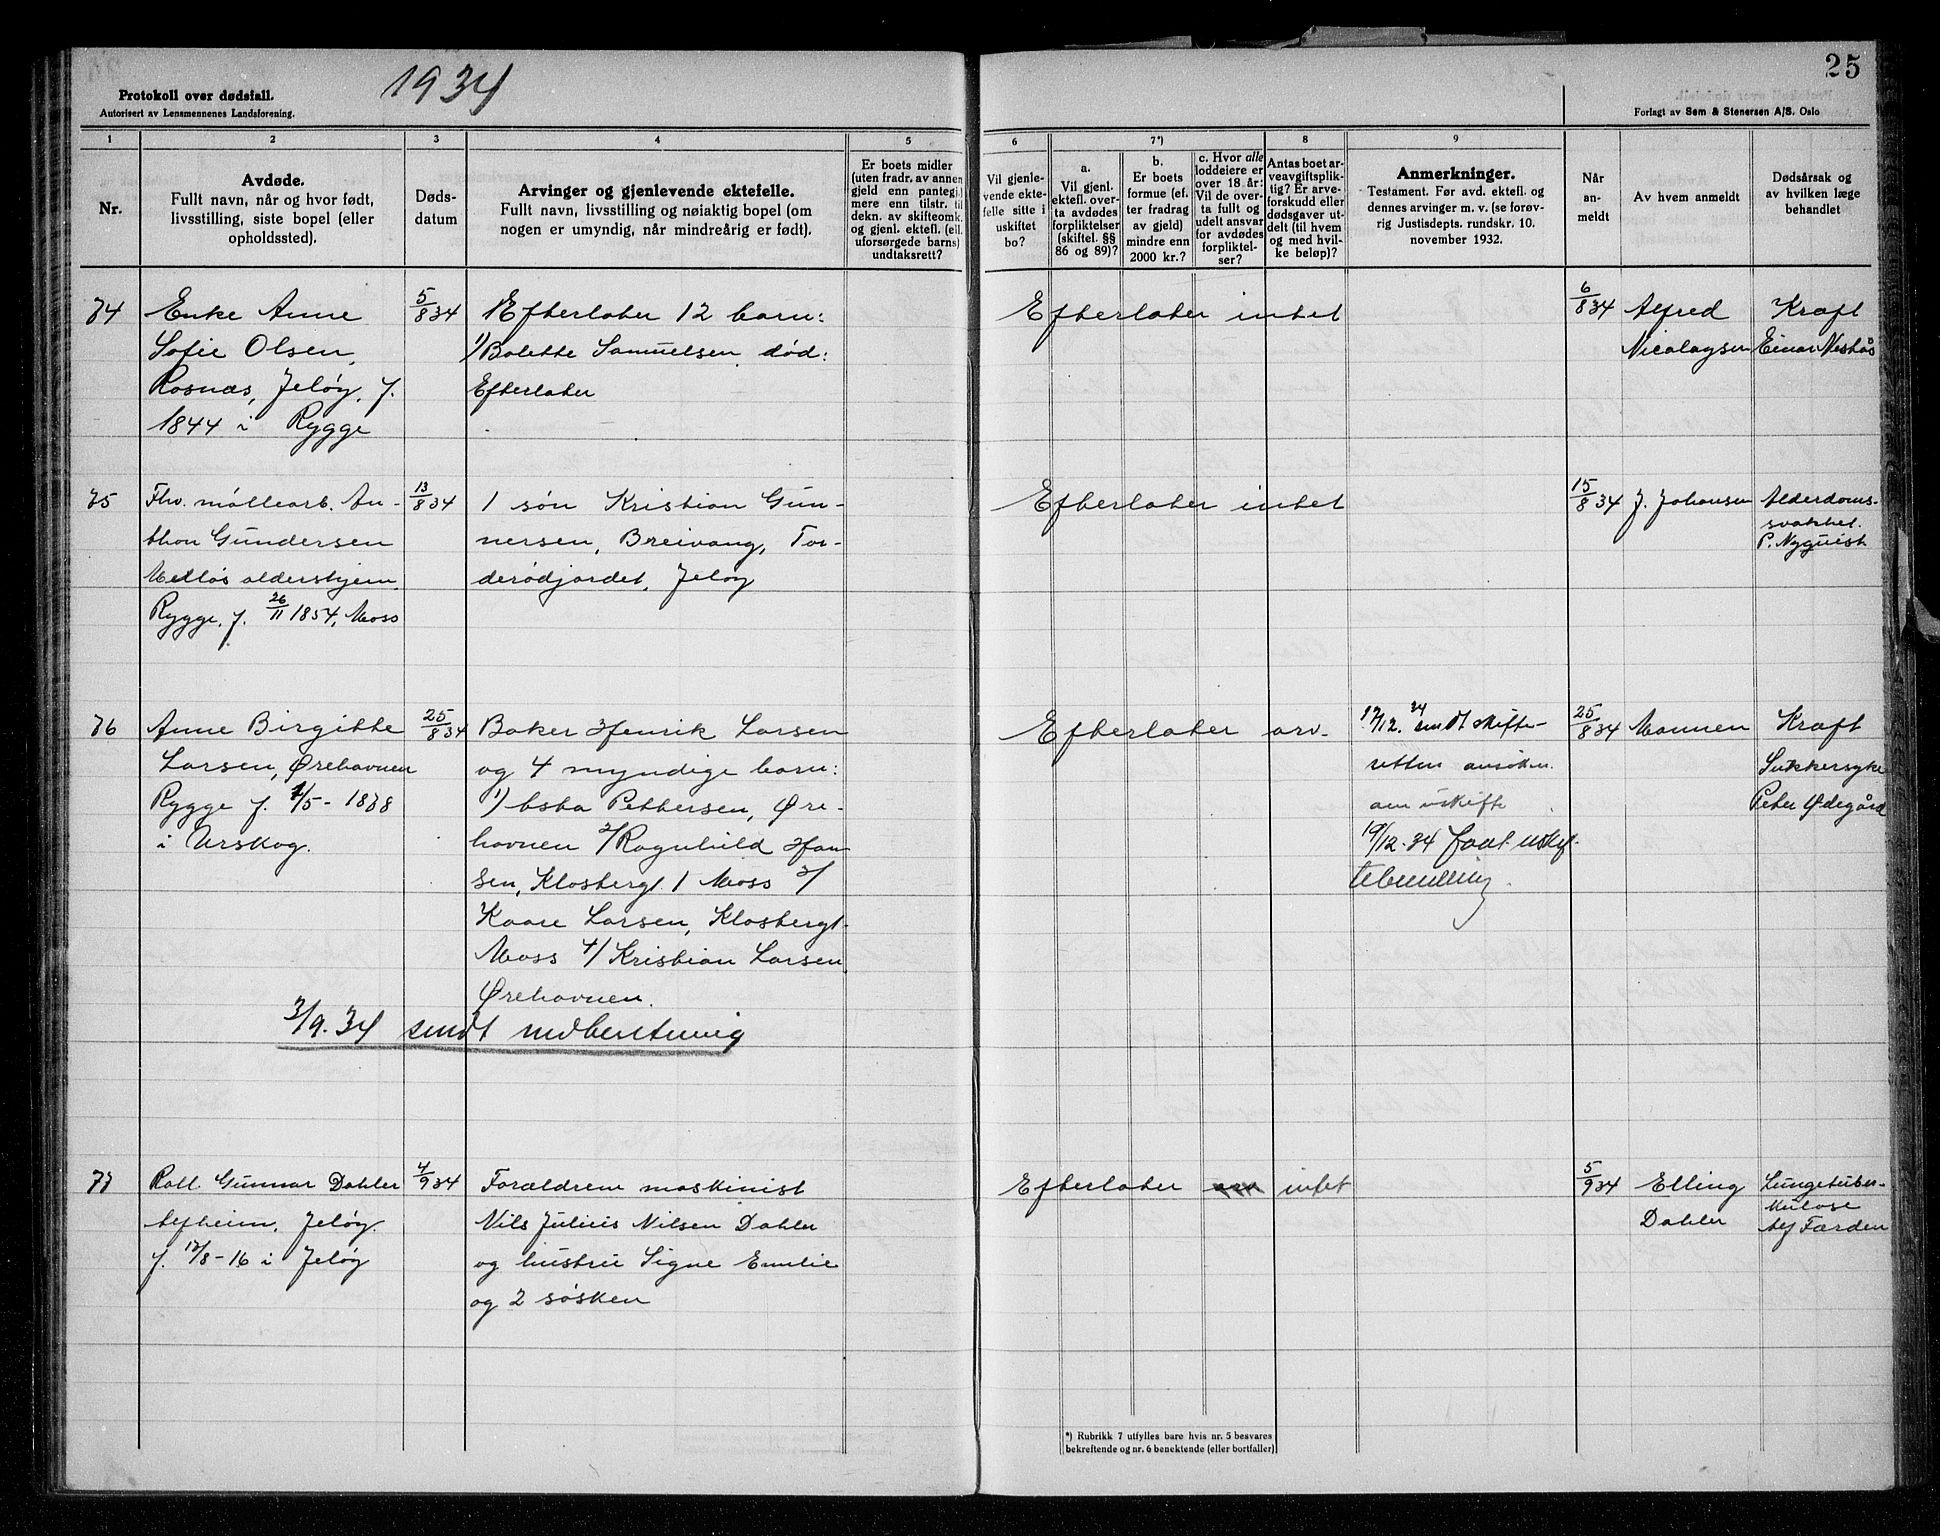 1934
25
Protokoll over dødsfall.
Autorisert av Lensmennenes Landsforening.
Forlagt av Sem & Stenersen A/S. Oslo
1 2 3 4 5 6 7*) 8 9
Nr.
Avdøde.
Fullt navn, når og hvor født,
livsstilling, siste bopel (eller
opholdssted).
Døds-
datum
Arvinger og gjenlevende ektefelle.
Fullt navn, livsstilling og nøiaktig bopel (om
nogen er umyndig, når mindreårig er født).
Er boets midler
(uten fradr. av annen
gjeld enn pantegj.)
mere enn tilstr. til
dekn. av skifteomk.
og gjenl. ektef. (ell.
uforsørgede barns)
undtaksrett?
Vil gjenle-
vende ekte-
felle sitte i
uskiftet
bo?
a.
Vil gjenl.
ektefl. over-
ta avdødes
forpliktelser
(skiftel. §§
86 og 89)?
b.
Er boets
formue (ef-
ter fradrag
av gjeld)
mindre enn
2000 kr.?
c. Hvor alle
loddeiere er
over 18 år:
Vil de over-
ta fullt og
udelt ansvar
for avdødes
forpliktel-
ser?
Antas boet ar-
veavgiftsplik-
tig? Er arve-
forskudd eller
dødsgaver ut-
delt (til hvem
og med hvil-
ke beløp)?
Anmerkninger.
Testament. Før avd. ektefl. og
dennes arvinger m. v. (se forøv-
rig Justisdepts. rundskr. 10.
november 1932.
Når
an-
meldt
Av hvem anmeldt
Dødsårsak og
av hvilken læge
behandlet
74 Enke Anne 5/8 34 Efterlater 12 barn: Efterlater intet 6/8 34 Alfred Kræft
Sofie Olsen, 1) Bolette Samuelsen død: Nicolaysen Einar
Rosnæs, Jeløy, f. Efterlater
1844 i Rygge
75 Fhv. møllearb. An- 13/8 34 1 søn Kristian Gun- Efterlater intet 15/8 34 J. Johansen Alderdoms-
thon Gundersen nersen, Breivang, Tor- svakhet.
Melløs aldershjem derødjordet, Jeløy P. Nyquist
Rygge, f. 26/11 1854, Moss
76 Anne Birgitte 25/8 34 Baker Henrik Larsen Efterlater arv. 17/12. 34 sendt skifte- 25/8 34 Mannen Kræft
Larsen, Ørehavnen og 4 myndige barn: retten ansøkn. Sukkersyke
Rygge f. 1/5 - 1868 1) Asta Pettersen, Øre- om uskifte Peter Ødegård
i Urskog. havnen 2/ Ragnhild Han- 19/12. 34 faat uskif-
sen, Klosbergt. 1 Moss 3/ tebevilling.
Kaare Larsen, Klosbergt.
Moss 4/ Kristian Larsen,
Ørehavnen.
3/9. 34 sendt indberetning
77 Rolf Gunnar Dahler 4/9 34 Forældrene maskinist Efterlater arv intet 5/9 34 Elling Lungetuber-
Alfheim, Jeløy. Nils Julius Nilsen Dahler Dahler kulose
f. 12/8 - 16 i Jeløy og hustru Signe Emilie Alf Færden
og 2 søsken
*) Rubrikk 7 utfylles bare hvis nr. 5 besvares
bekreftende og nr. 6 benektende (eller bortfaller)